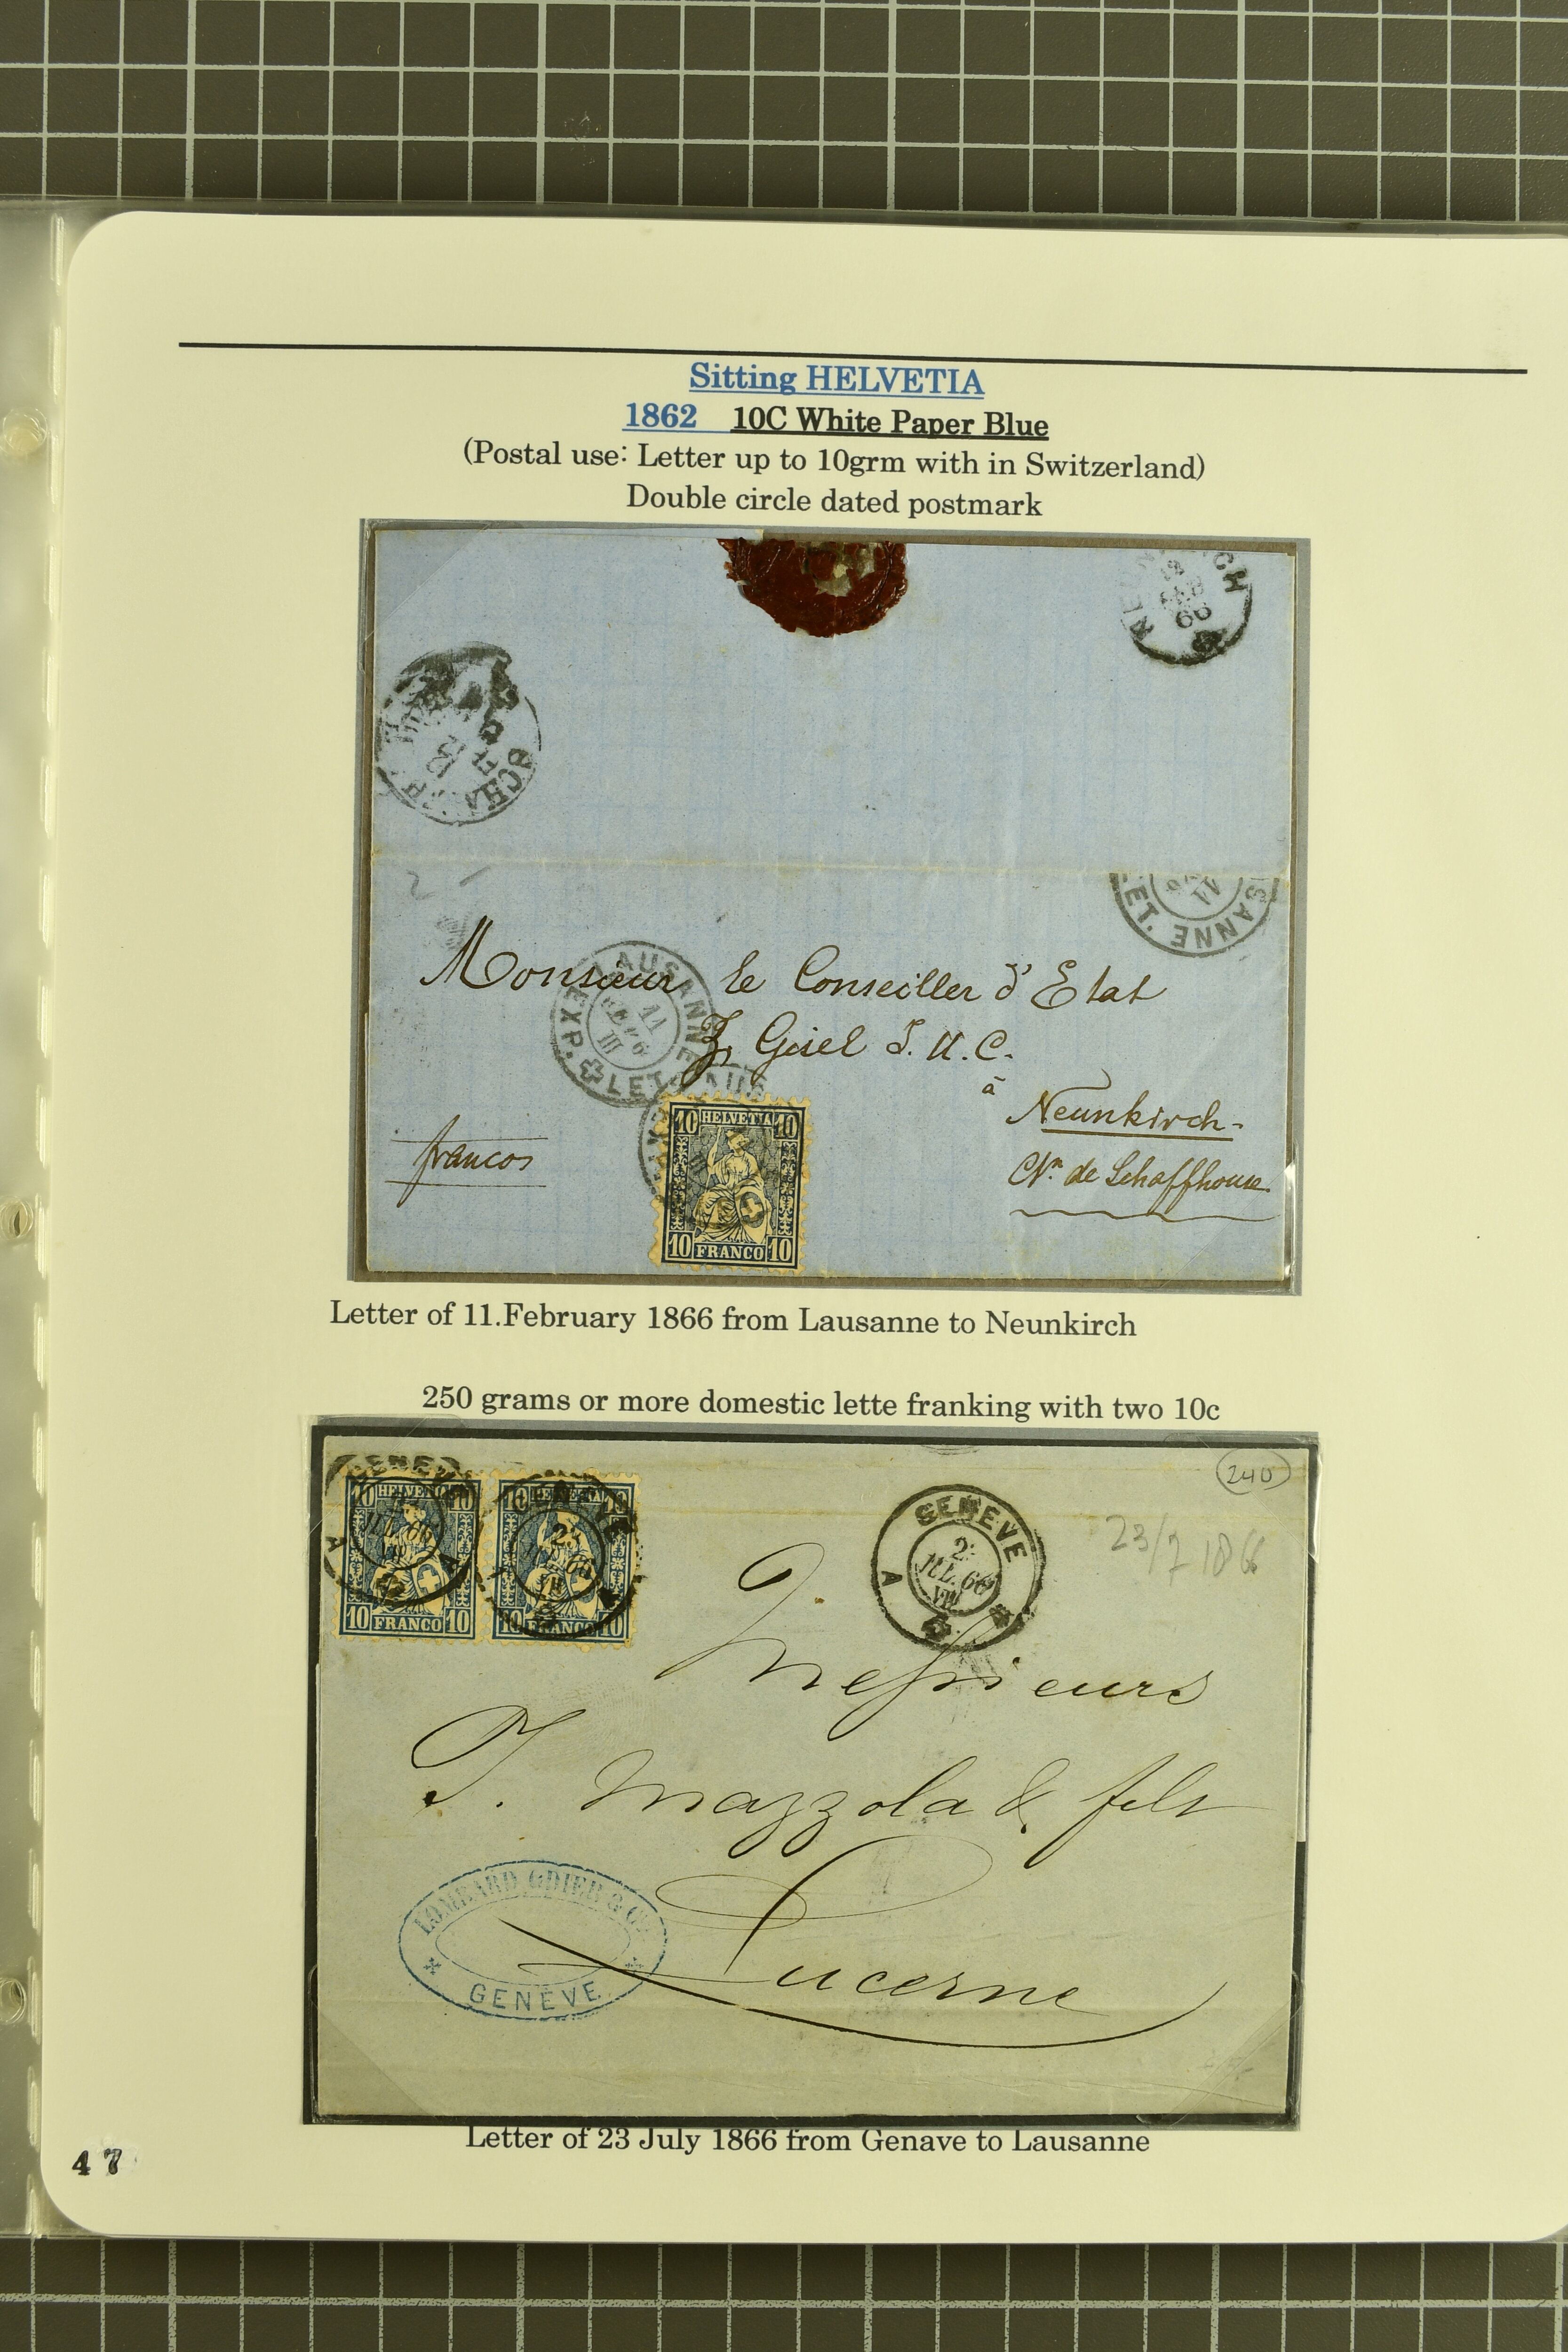 Sitting HELVETIA
1862 10C White Paper Blue
(Postal use: Letter up to 10grm with in Switzerland)
Double circle dated postmark
CH
66
SCHA
SANNE
LET.
Monsieur le Conseiller d'Etat
LAUSANNE
11
III
EXP. LET.
Gisel
à
Neunkirch.
francos
Ctn de Schaffhouse
10 HELVETIA 10
10 FRANCO 10
Letter of 11.February 1866 from Lausanne to Neunkirch
250 grams or more domestic lette franking with two 10c
240
GENEVE
JUL. 66
VII
A
23/7 1866
10 HELVETIA 10
JUL. 66
A
10 FRANCO 10
23
66
10 FRANCO 10
Messieurs
J. Mazzola & fils
Lucerne
LOMBARD ODIER & Co
GENÈVE
Letter of 23 July 1866 from Genave to Lausanne
47